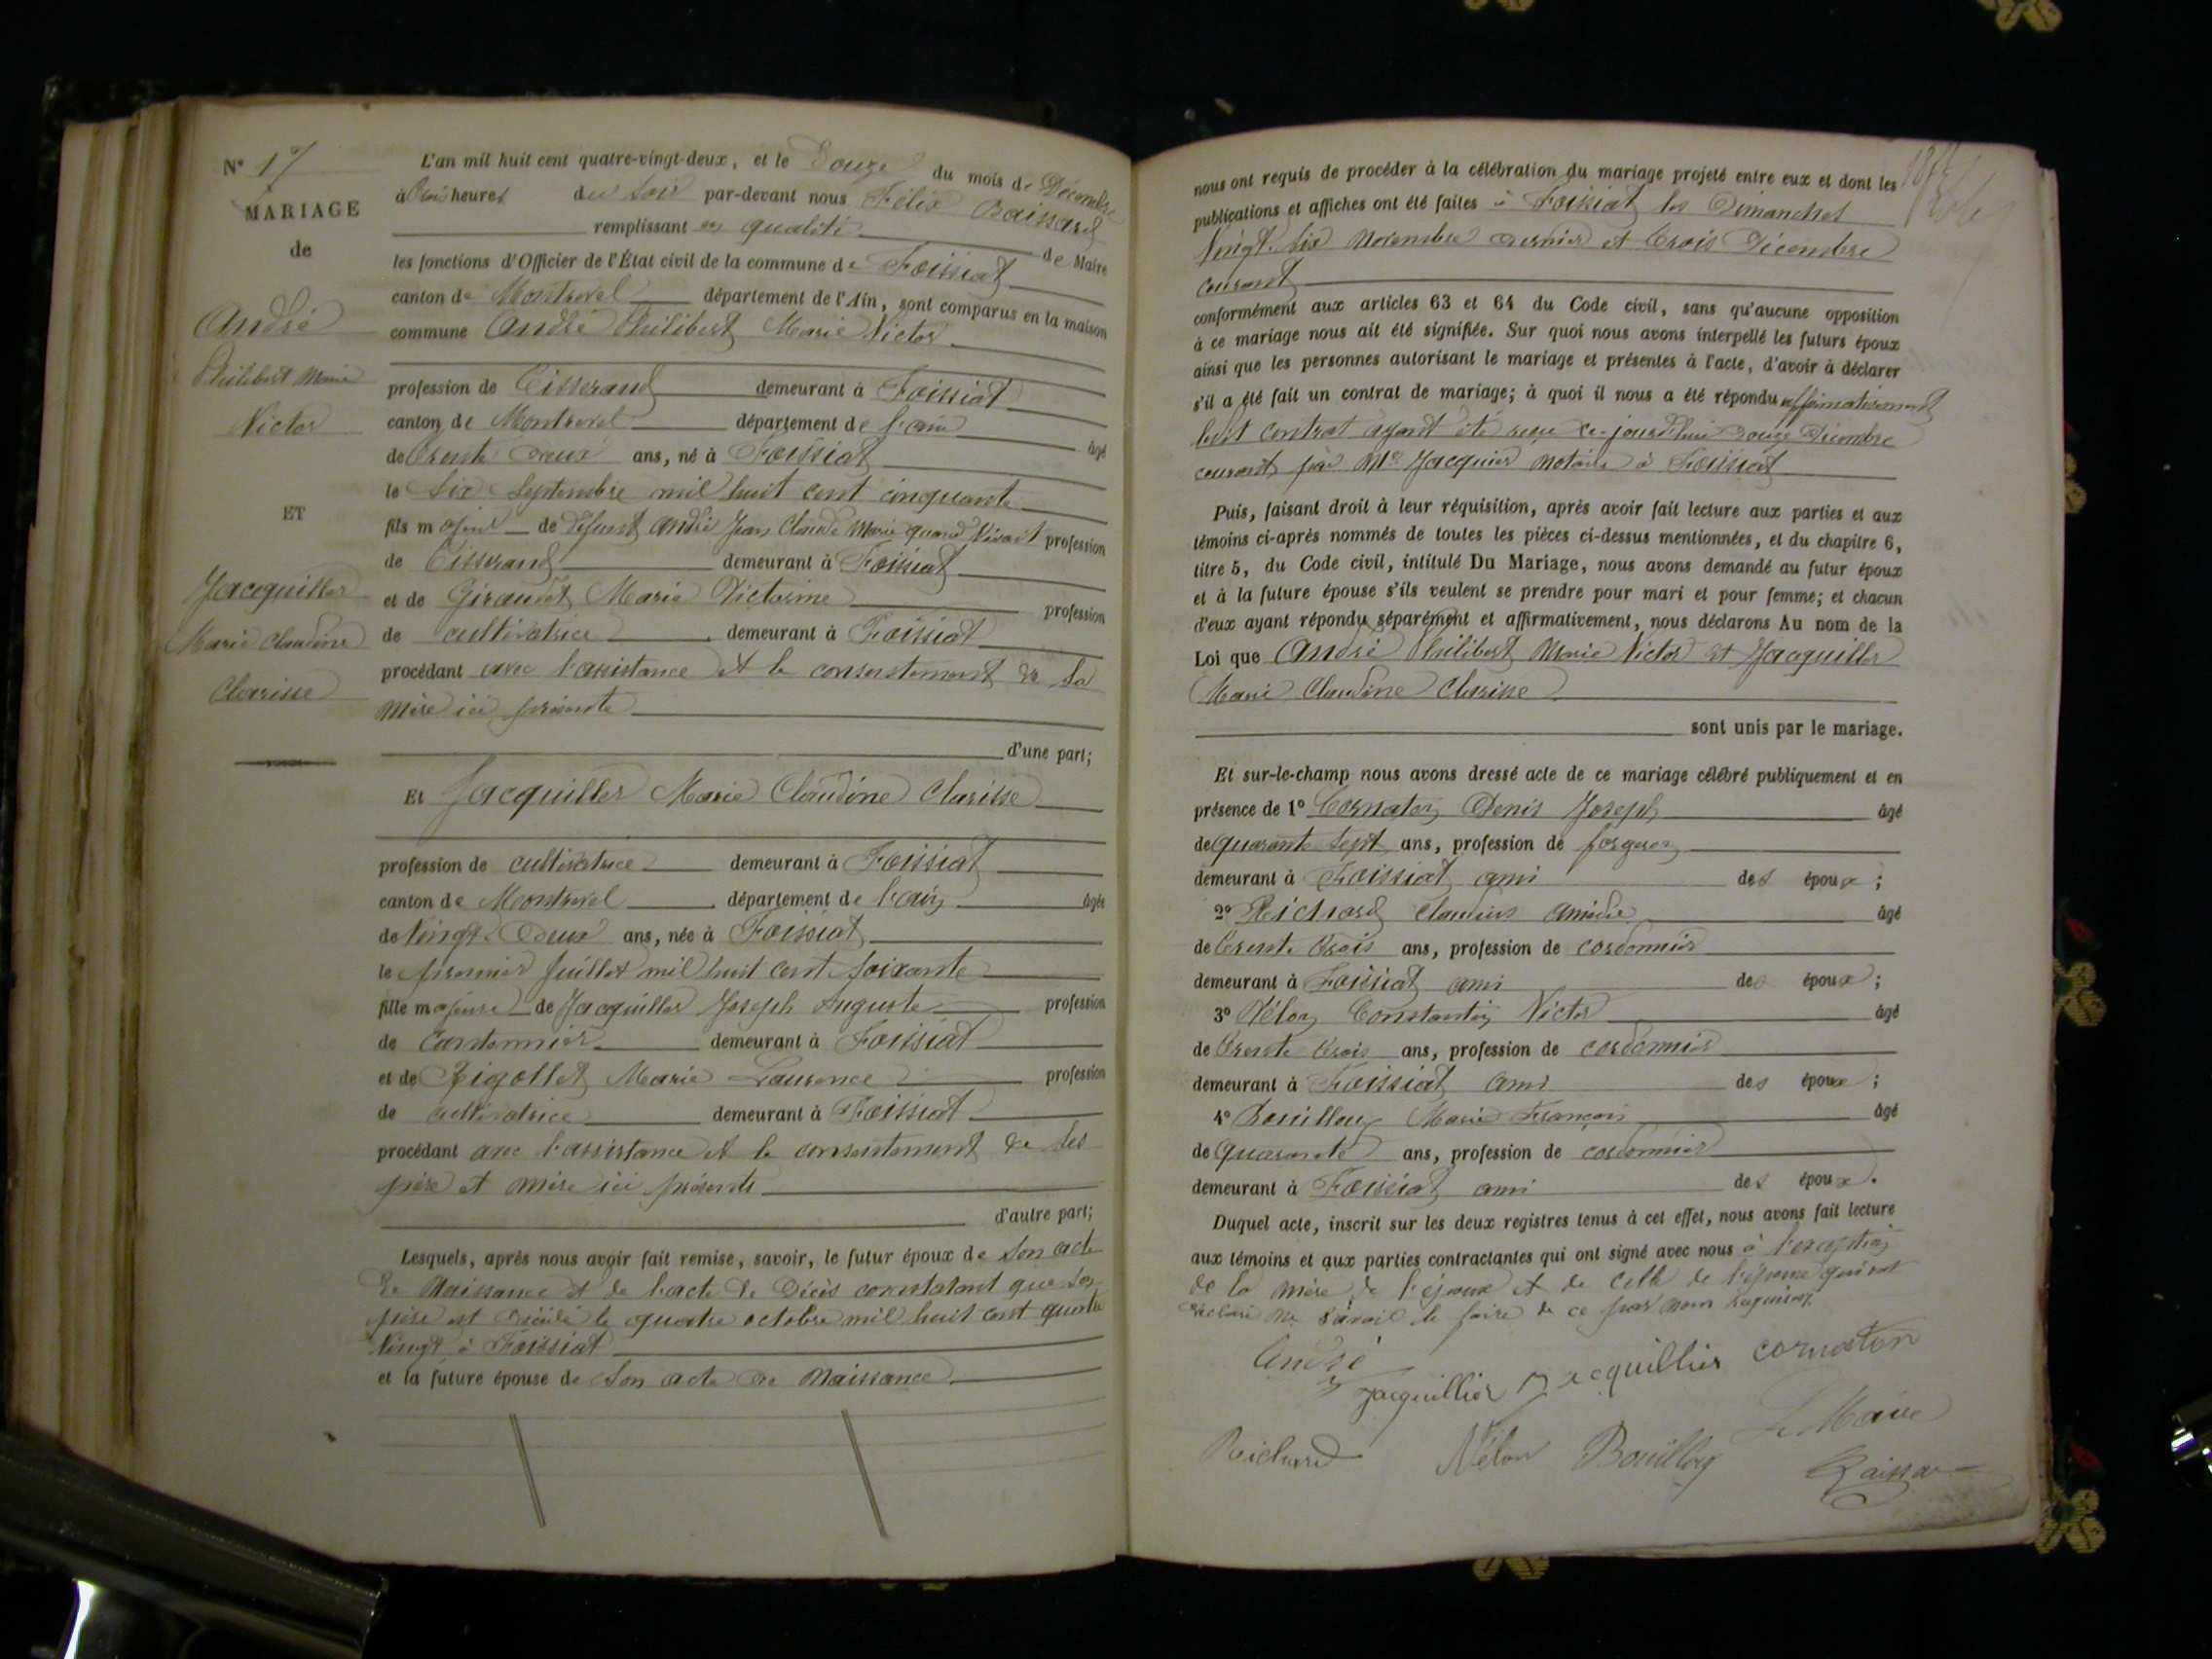 N° 17
MARIAGE
de
André
Philibert Marie
Victor
ET
Jacquiller
Marie Claudine
Clarisse
L'an mil huit cent quatre-vingt-deux, et le Douze du mois de Décembre
à trois heures du Soir par-devant nous Félix
remplissant en qualité de Maire
les fonctions d'Officier de l'État civil de la commune de Foissiat
canton de Montrevel département de l'Ain, sont comparus en la maison
commune André Philibert Marie Victor
profession de Tisserand demeurant à Foissiat
canton de Montrevel département de l'ain âgé
de trente deux ans, né à Foissiat
le Six Septembre mil huit cent cinquante
fils majeur de défunt André Jean Claude Marie quand Vivait profession
de Tisserand demeurant à Foissiat
et de Giraudet Marie Victorine profession
de cultivatrice demeurant à Foissiat
procédant avec l'assistance et le consentement de Sa
mère ici présente
d'une part;
Et Jacquiller Marie Claudine Clarisse
profession de cultivatrice demeurant à Foissiat
canton de Montrevel département de l'ain âgée
de Vingt Deux ans, née à Foissiat
le premier Juillet mil huit cent soixante
fille majeure de Jacquiller Joseph Auguste profession
de Cantonnier demeurant à Foissiat
et de Rigollet Marie Laurence profession
de cultivatrice demeurant à Foissiat
procédant avec l'assistance et le consentement de ses
père et mère ici présents
d'autre part;
Lesquels, après nous avoir fait remise, savoir, le futur époux de Son acte
de Naissance et de l'acte de Décès constatant que son
père est décédé le quatre octobre mil huit cent quatre
Vingt à Foissiat
et la future épouse de Son acte de Naissance
nous ont requis de procéder à la célébration du mariage projeté entre eux et dont les
publications et affiches ont été faites à Foissiat les Dimanches
Vingt Six Novembre dernier et trois Décembre
courant
conformément aux articles 63 et 64 du Code civil, sans qu'aucune opposition
à ce mariage nous ait été signifiée. Sur quoi nous avons interpellé les futurs époux
ainsi que les personnes autorisant le mariage et présentes à l'acte, d'avoir à déclarer
s'il a été fait un contrat de mariage; à quoi il nous a été répondu affirmativement
ledit contrat ayant été reçu ce-jourd'hui douze Décembre
courant par Me Jacquier Notaire à Foissiat
Puis, faisant droit à leur réquisition, après avoir fait lecture aux parties et aux
témoins ci-après nommés de toutes les pièces ci-dessus mentionnées, et du chapitre 6,
titre 5, du Code civil, intitulé Du Mariage, nous avons demandé au futur époux
et à la future épouse s'ils veulent se prendre pour mari et pour femme; et chacun
d'eux ayant répondu séparément et affirmativement, nous déclarons Au nom de la
Loi que André Philibert Marie Victor et Jacquiller
Marie Claudine Clarisse
sont unis par le mariage.
Et sur-le-champ nous avons dressé acte de ce mariage célébré publiquement et en
présence de 1° Cornaton Denis Joseph âgé
de quarante Sept ans, profession de forgeron
demeurant à Foissiat ami des époux;
2° Richard Claudius Amédée âgé
de trente trois ans, profession de cordonnier
demeurant à Foissiat ami des époux;
3° Vélon Constantin Victor âgé
de trente trois ans, profession de cordonnier
demeurant à Foissiat ami des époux;
4° Bouilloux Marie François âgé
de quarante ans, profession de cordonnier
demeurant à Foissiat ami des époux.
Duquel acte, inscrit sur les deux registres tenus à cet effet, nous avons fait lecture
aux témoins et aux parties contractantes qui ont signé avec nous à l'exception
de la mère de l'époux et de celle de l'épouse qui ont
déclaré ne savoir le faire de ce par nous requises
André
Jacquillier Jacquillier cornaton
Richard Vélon Bouilloux Le Maire